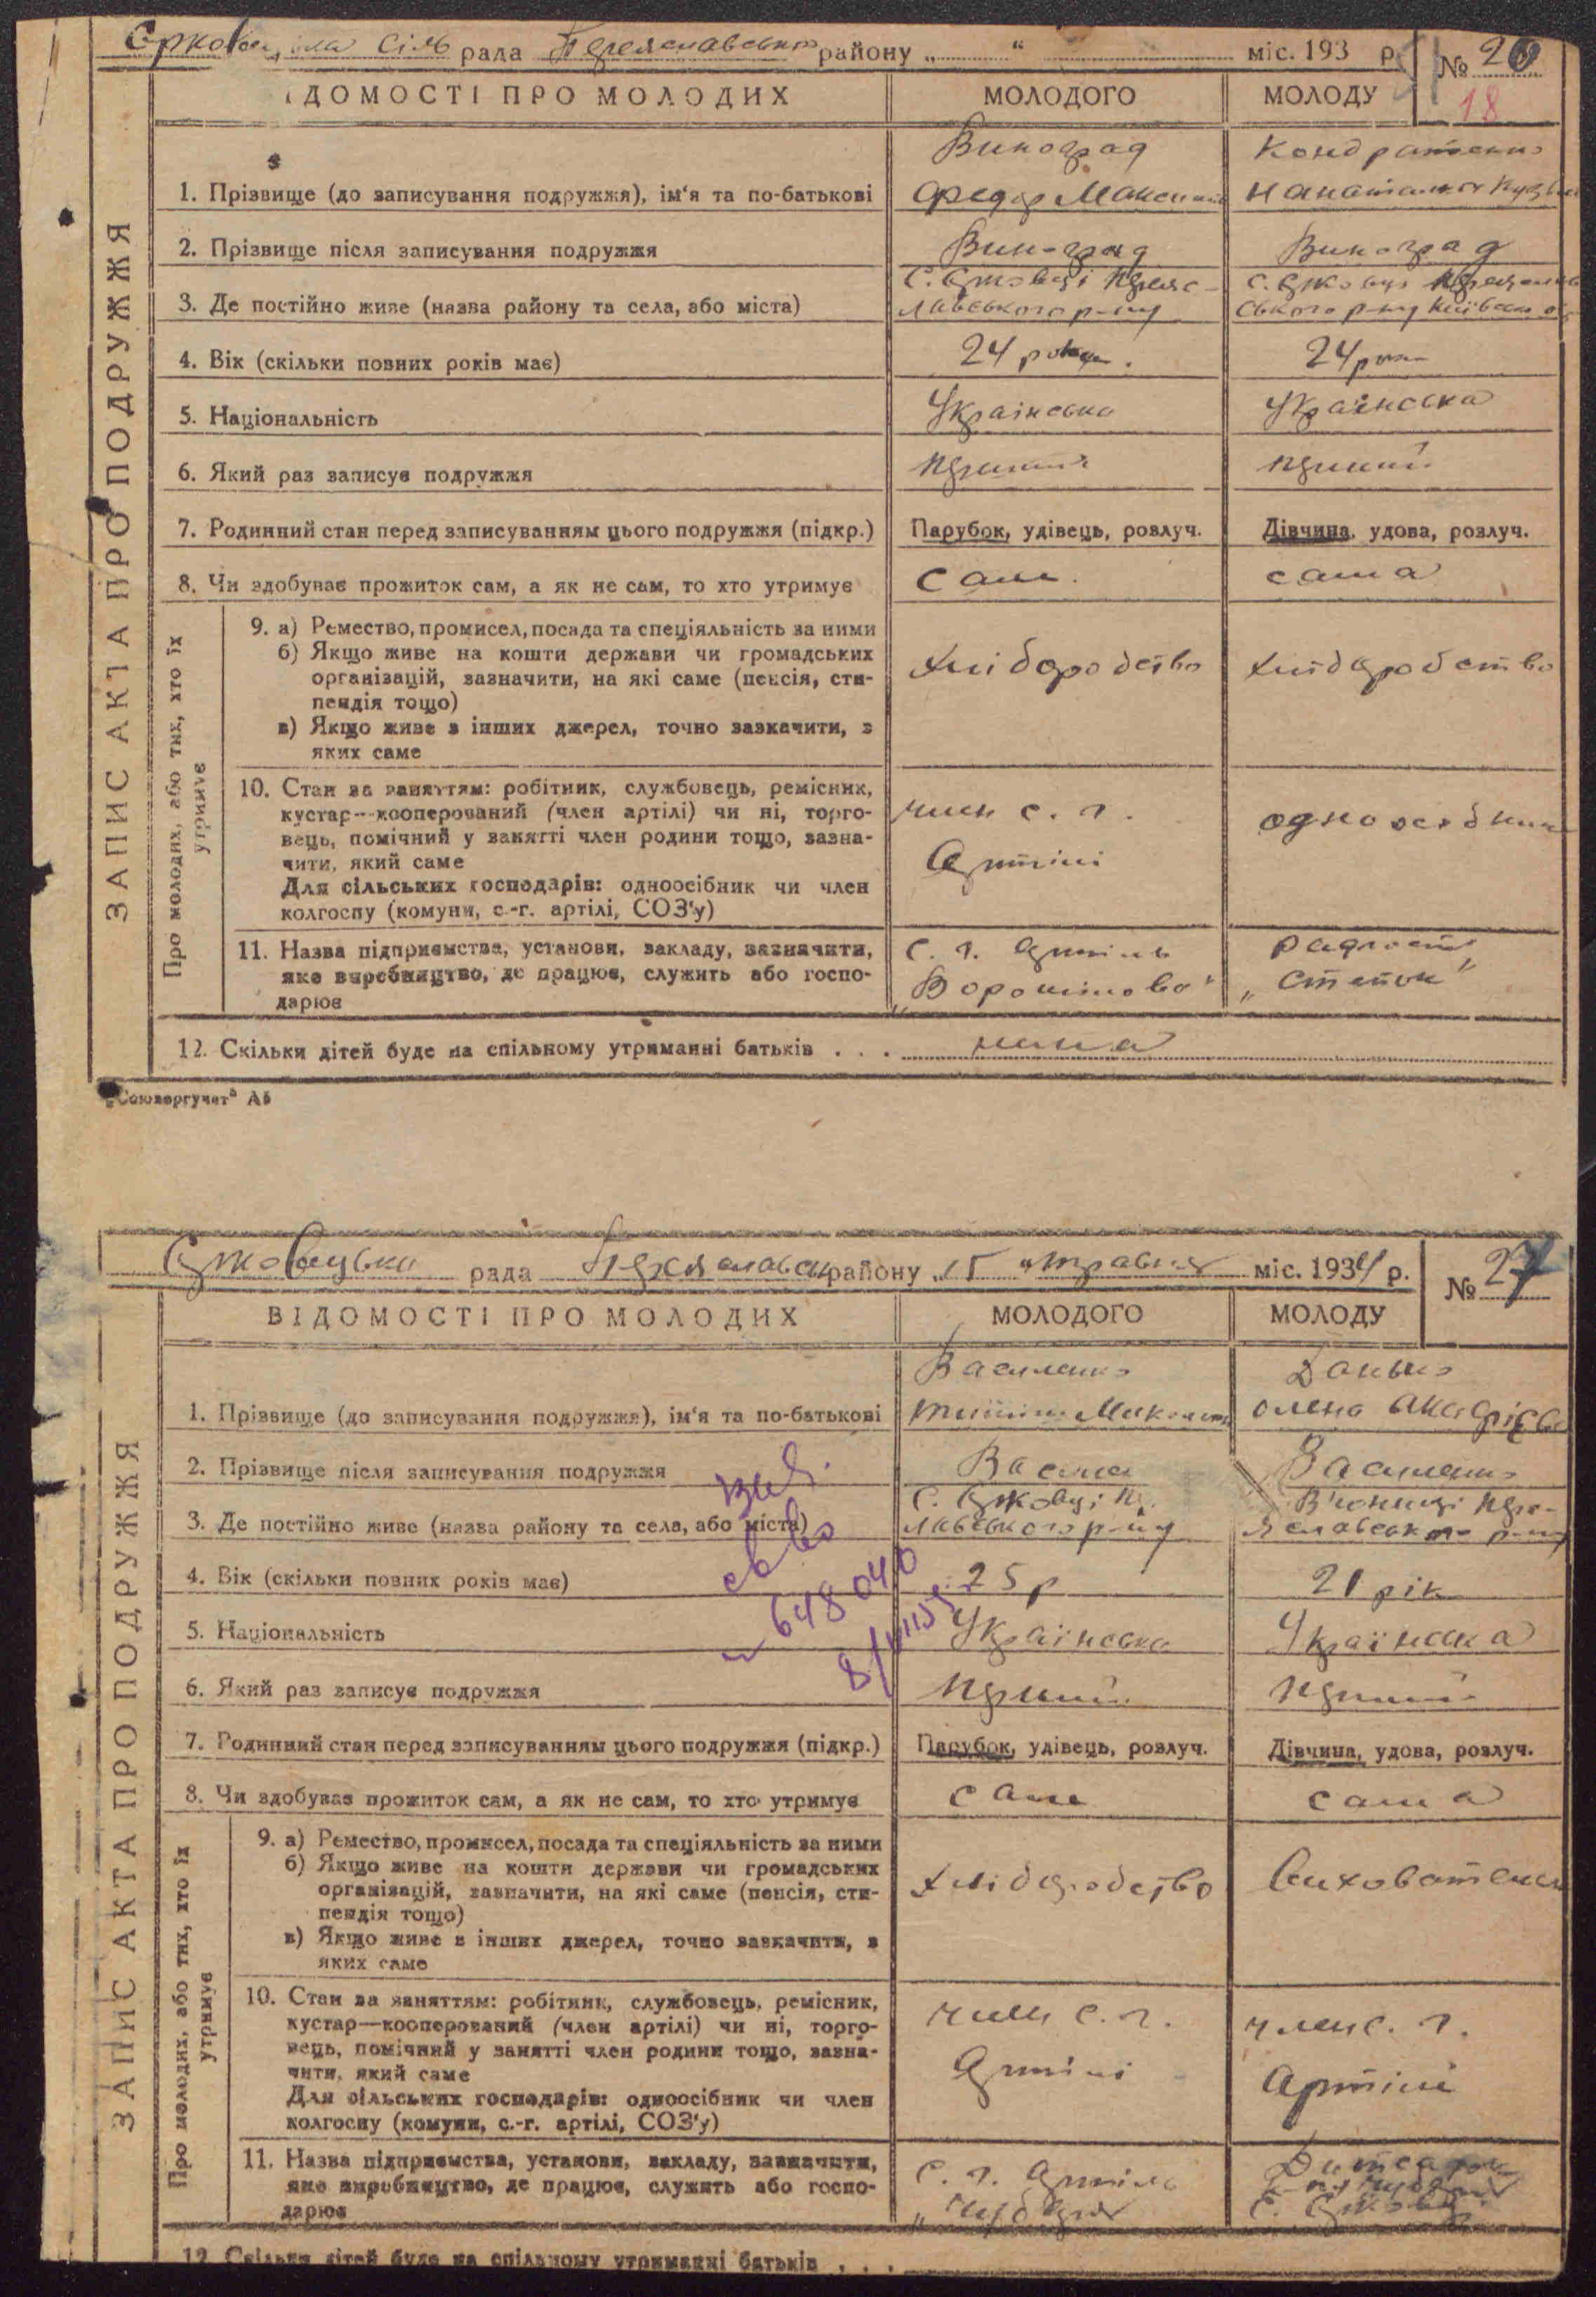 рада Переяславсько району „ “ міс. 193 р. № 26
18
ІДОМОСТІ ПРО МОЛОДИХ МОЛОДОГО МОЛОДУ
ЗАПИС АКТА ПРО ПОДРУЖЖЯ
Виноград Кондратенко
1. Прізвище (до записування подружжя), ім‘я та по-батькові Федор Максимів
2. Прізвище після записування подружжя Виноград Виноград
3. Де постійно живе (назва району та села, або міста)
4. Вік (скільки повних років має) 24 роки. 24 роки
5. Національність Українська Українська
6. Який раз записує подружжя перший перший
7. Родинний стан перед записуванням цього подружжя (підкр.) Парубок, удівець, розлуч. Дівчина, удова, розлуч.
8. Чи здобуває прожиток сам, а як не сам, то хто утримує сам. сама
Про молодих, або тих, хто їх утримує
9. а) Ремество, промисел, посада та спеціяльність за ними
б) Якщо живе на кошти держави чи громадських
організацій, зазначити, на які саме (пенсія, сти-
пендія тощо)
в) Якщо живе з інших джерел, точно зазначити, з
яких саме
хліборобство хліборобство
10. Стан за заняттям: робітник, службовець, ремісник,
кустар—кооперований (член артілі) чи ні, торго-
вець, помічний у занятті член родини тощо, зазна-
чити, який саме
Для сільських господарів: одноосібник чи член
колгоспу (комуни, с.-г. артілі, СОЗ‘у)
член с. г. одноосібник
Артілі
11. Назва підприємства, установи, закладу, зазначити,
яке виробництво, де працює, служить або госпо-
дарює
с. г. артіль
„Ворошилова“
12. Скільки дітей буде на спільному утриманні батьків . . . нема
„Союзоргучет“ А5
рада району „15“ травня міс. 1934 р. № 27
ВІДОМОСТІ ПРО МОЛОДИХ МОЛОДОГО МОЛОДУ
ЗАПИС АКТА ПРО ПОДРУЖЖЯ
Василенко Данько
1. Прізвище (до записування подружжя), ім‘я та по-батькові Олена
2. Прізвище після записування подружжя Василенко
3. Де постійно живе (назва району та села, або міста)
вид.
св во
648040
4. Вік (скільки повних років має) 25 р 21 рік
5. Національність Українська Українська
6. Який раз записує подружжя перший перший
7. Родинний стан перед записуванням цього подружжя (підкр.) Парубок, удівець, розлуч. Дівчина, удова, розлуч.
8. Чи здобуває прожиток сам, а як не сам, то хто утримує сам сама
Про молодих, або тих, хто їх утримує
9. а) Ремество, промисел, посада та спеціяльність за ними
б) Якщо живе на кошти держави чи громадських
організацій, зазначити, на які саме (пенсія, сти-
пендія тощо)
в) Якщо живе з інших джерел, точно зазначити, з
яких саме
хліборобство
10. Стан за заняттям: робітник, службовець, ремісник,
кустар—кооперований (член артілі) чи ні, торго-
вець, помічний у занятті член родини тощо, зазна-
чити, який саме
Для сільських господарів: одноосібник чи член
колгоспу (комуни, с.-г. артілі, СОЗ‘у)
член с. г. член с. г.
Артілі Артілі
11. Назва підприємства, установи, закладу, зазначити,
яке виробництво, де працює, служить або госпо-
дарює
с. г. артіль
12. Скільки дітей буде на спільному утриманні батьків . . .